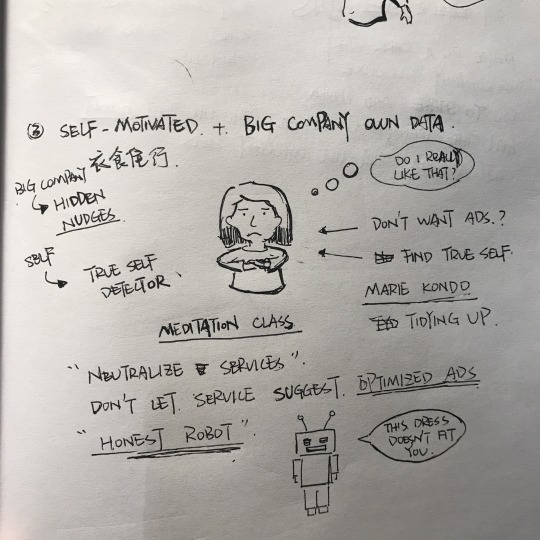 ③ SELF-MOTIVATED. + BIG COMPANY OWN DATA.
衣食住行.
BIG COMPANY
HIDDEN
NUDGES.
SELF
TRUE SELF
DETECTOR
DO I REALLY
LIKE THAT?
DON'T WANT ADS.?
FIND TRUE SELF.
MARIE KONDO
TIDYING UP.
MEDITATION CLASS
"NEUTRALIZE SERVICES".
DON'T LET SERVICE SUGGEST. OPTIMIZED ADS
"HONEST ROBOT".
THIS DRESS
DOESN'T FIT
YOU.